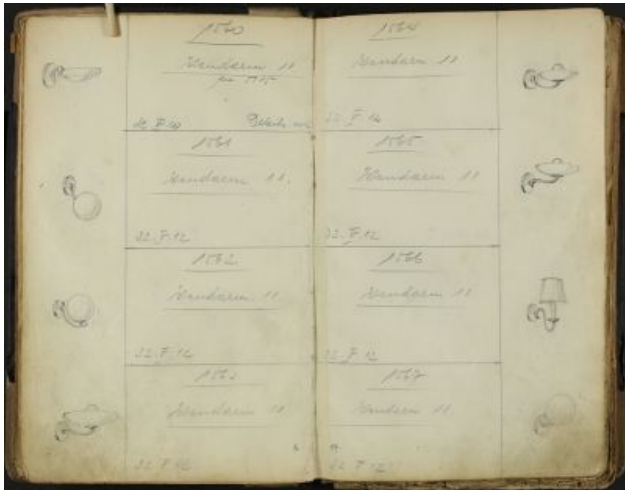 1560
Wandarm 11
32 F 12
1561
Wandarm 11.
32. F. 12
1562
Wandarm 11
32. F. 12
1563
Wandarm 11
32 F 12
1564
Wandarm 11
32. F 12
1565
Wandarm 11
32. F. 12
1566
Wandarm 11
32. F 12
1567
Wandarm 11
32 F 12